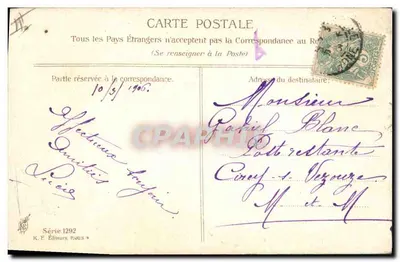 CARTE POSTALE
Tous les Pays Étrangers n'acceptent pas la Correspondance au Re
(Se renseigner à la Poste)
Partie réservée à la correspondance.
Adresse du destinataire.
10/3/1906.
Affectueux bonjour
Amitiés
Lucie
Monsieur
Gabriel Blanc
Poste restante
Cirey s. Vezouze
M et M
CARTPOSTAL
Série 1292